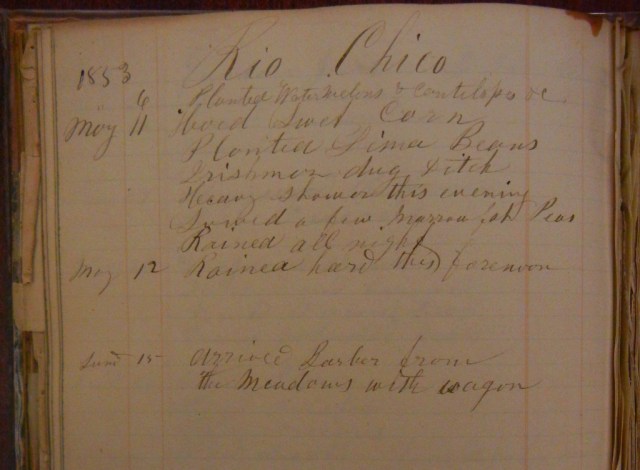 Rio Chico
1853
6 Planted Watermelons & Cantelops &c.
May 11 Hoed Sweet Corn
Planted Lima Beans
Irishman dug ditch
Heavy shower this evening
Sowed a few Marrow fat Peas
Rained all night
May 12 Rained hard this forenoon
15 arrived Barber from
the Meadows with wagon